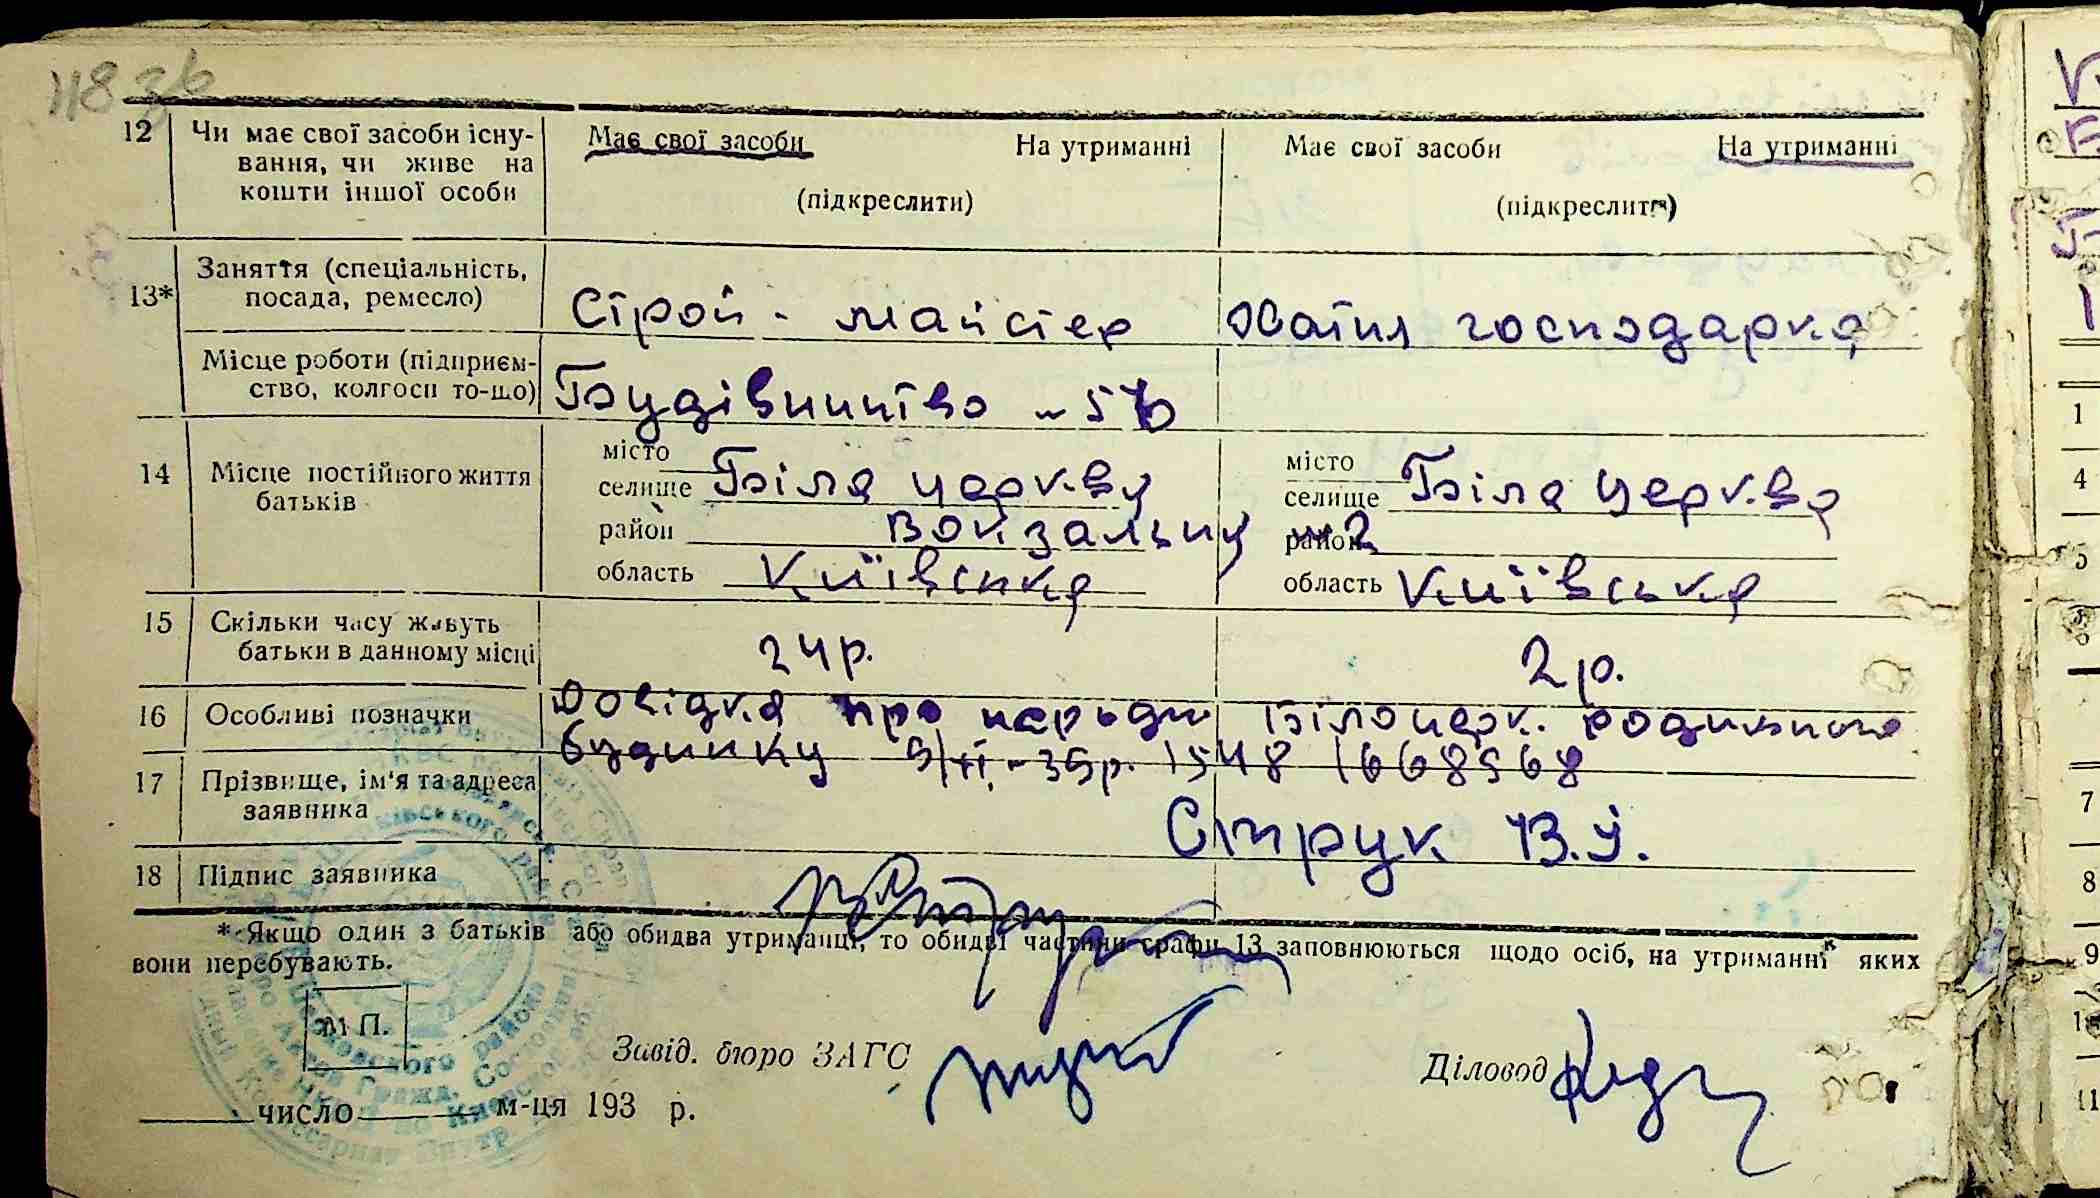 118 зв
12 Чи має свої засоби існу-
вання, чи живе на
кошти іншої особи
Має свої засоби На утриманні
(підкреслити)
Має свої засоби На утриманні
(підкреслити)
13* Заняття (спеціальність,
посада, ремесло)
Строй - майстер
Хатня господарка
Місце роботи (підприєм-
ство, колгосп то-що)
Будівництво
14 Місце постійного життя
батьків
місто
селище Біла церкву
район Вокзальну №2
область Київська
місто
селище Біла церква
район
область Київська
15 Скільки часу живуть
батьки в данному місці
24р.
2р.
16 Особливі позначки
Довідка про народж Білоцерк. родильного
будинку 9/XI-35р. 1548 1668568
17 Прізвище, ім'я та адреса
заявника
Струк В.Й.
18 Підпис заявника
* Якщо один з батьків або обидва утриманці, то обидві частини графи 13 заповнюються щодо осіб, на утриманні яких
вони перебувають.
М П.
Завід. бюро ЗАГС
Діловод
число м-ця 193 р.
1
4
5
7
8
9
11